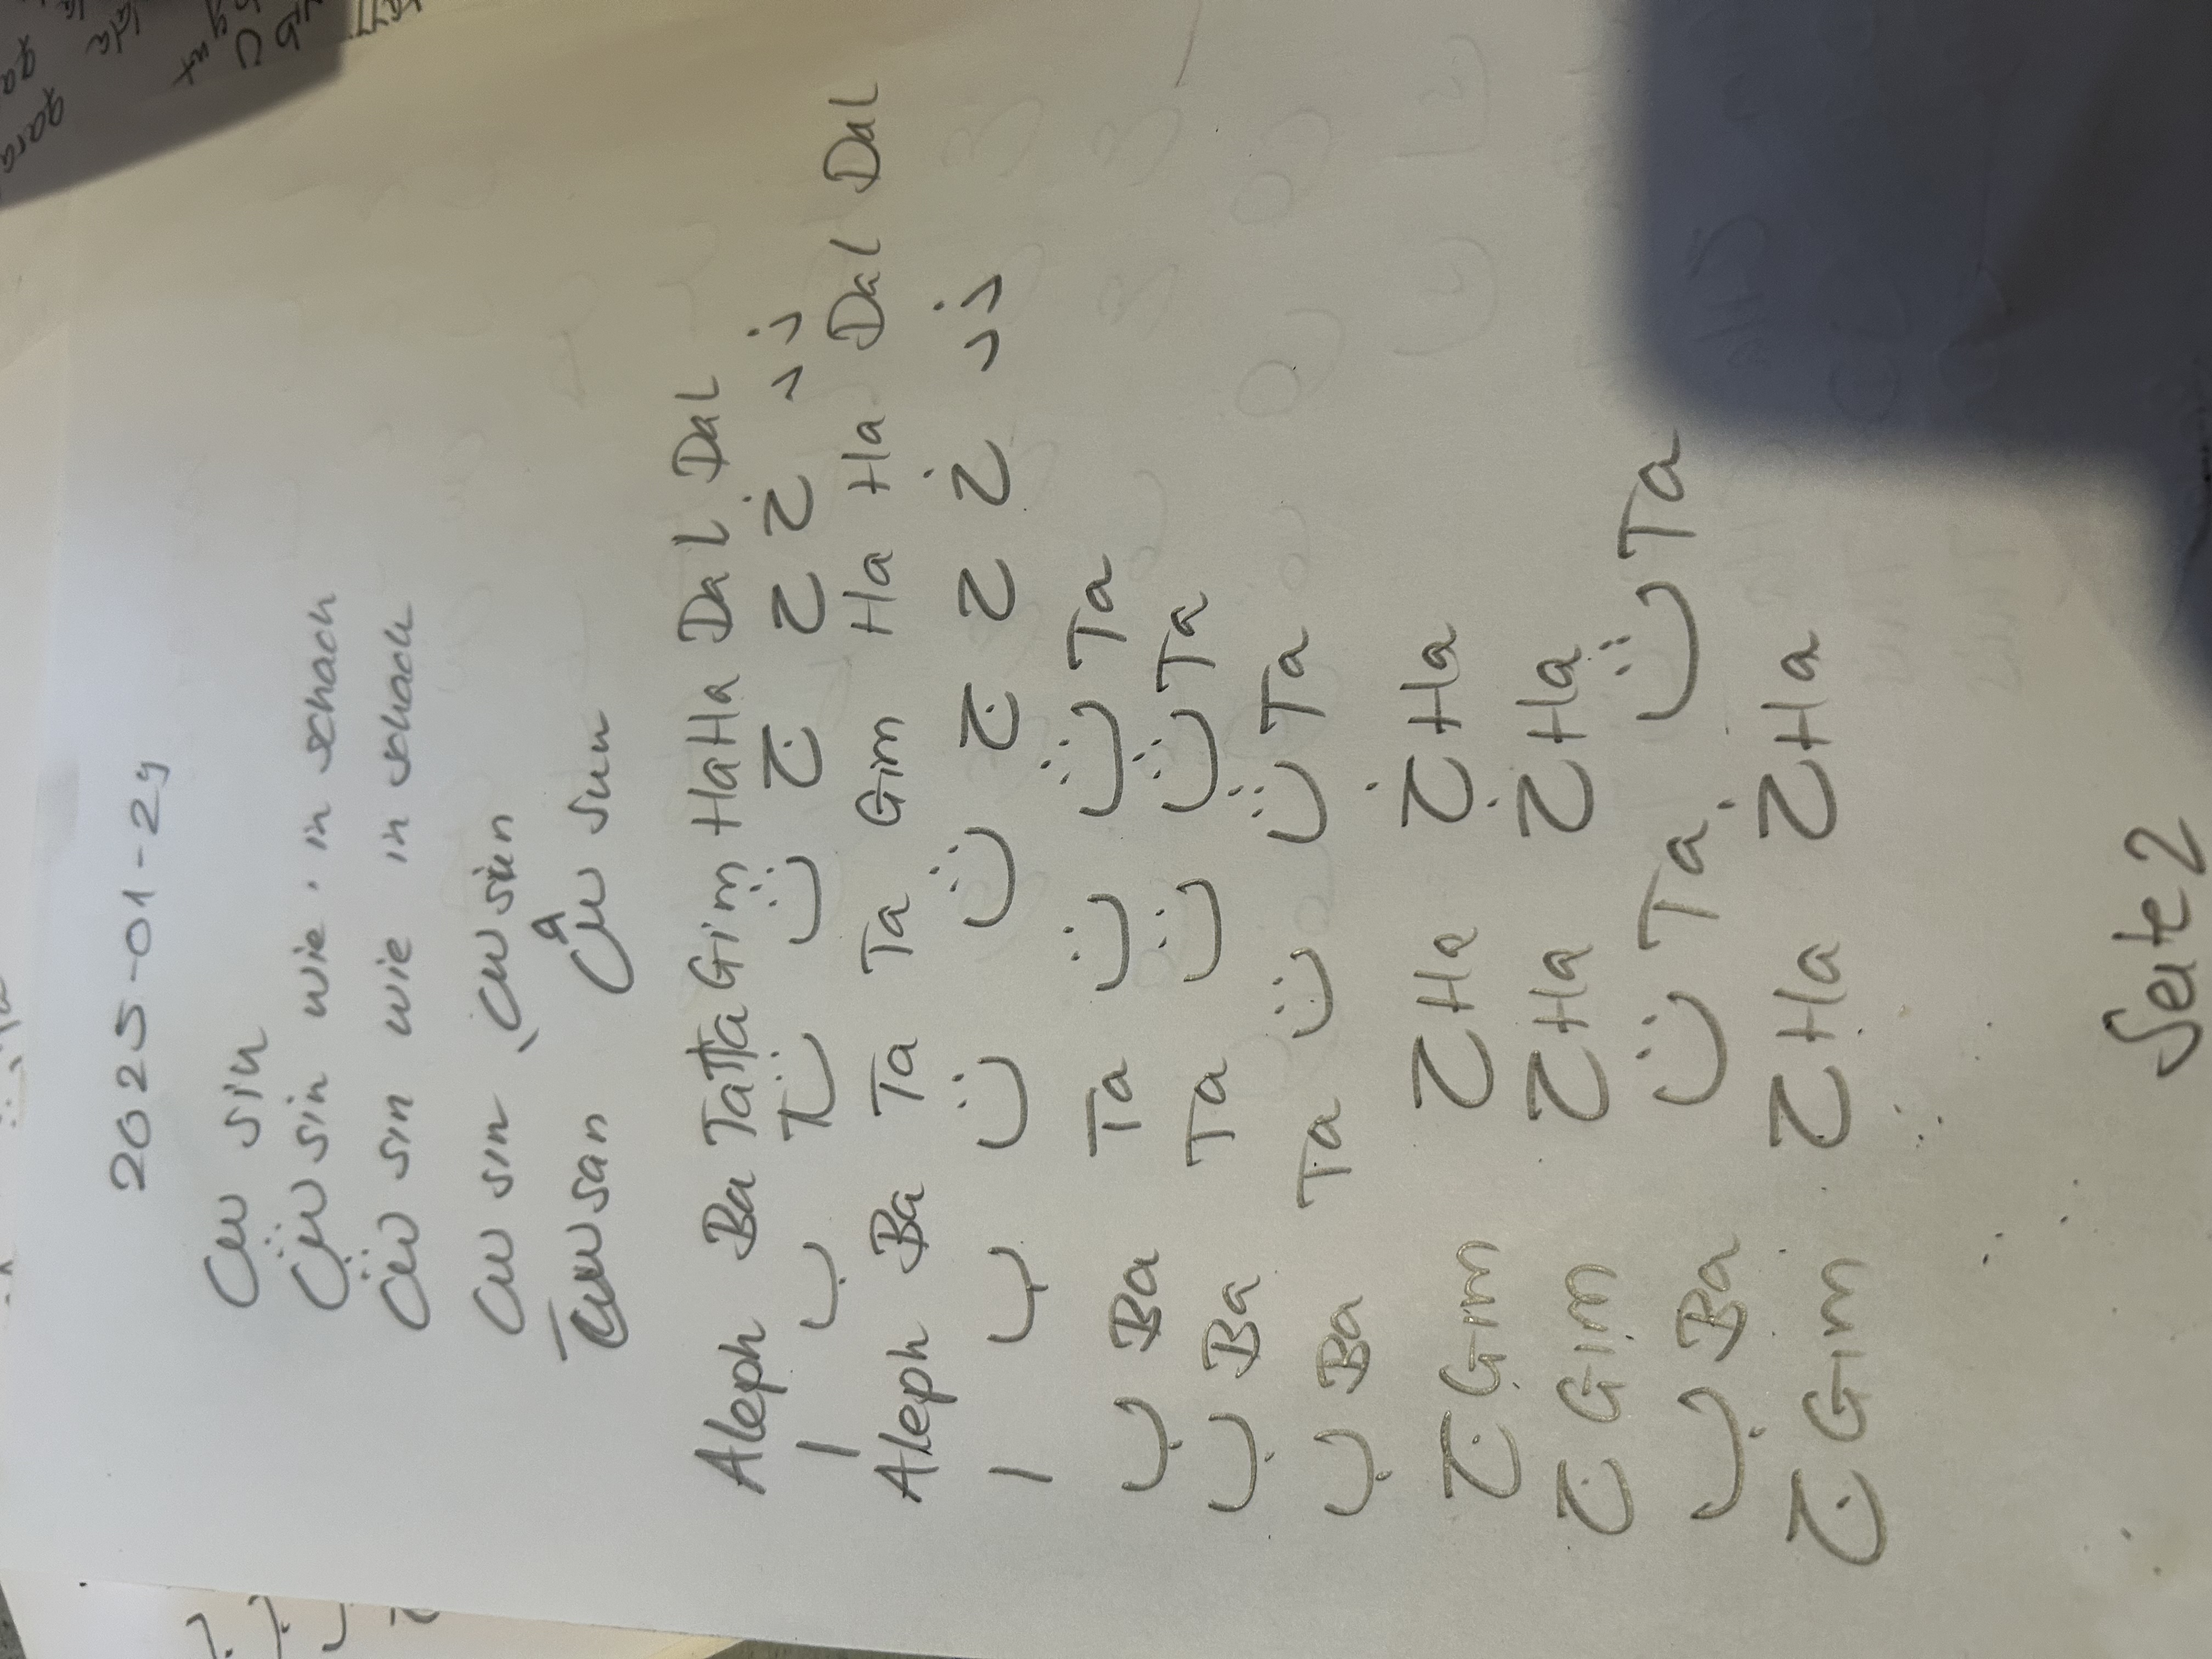 2025-01-29
س sin
ش sin wie . in schach
ش sin wie in schach
س sin س sin
san س sun
Aleph Ba Ta Ta Gim Ha Ha Dal Dal
ا ب ت ث ج ح خ د ذ
Aleph Ba Ta Ta Gim Ha Ha Dal Dal
ا ب ت ث ج ح خ د ذ
ب Ba Ta ت ث Ta
ب Ba Ta ت ث Ta
ب Ba Ta ت ث Ta
ج Gim ح Ha خ Ha
ج Gim ح Ha خ Ha
ب Ba ت Ta ث Ta
ج Gim ح Ha خ Ha
Seite 2